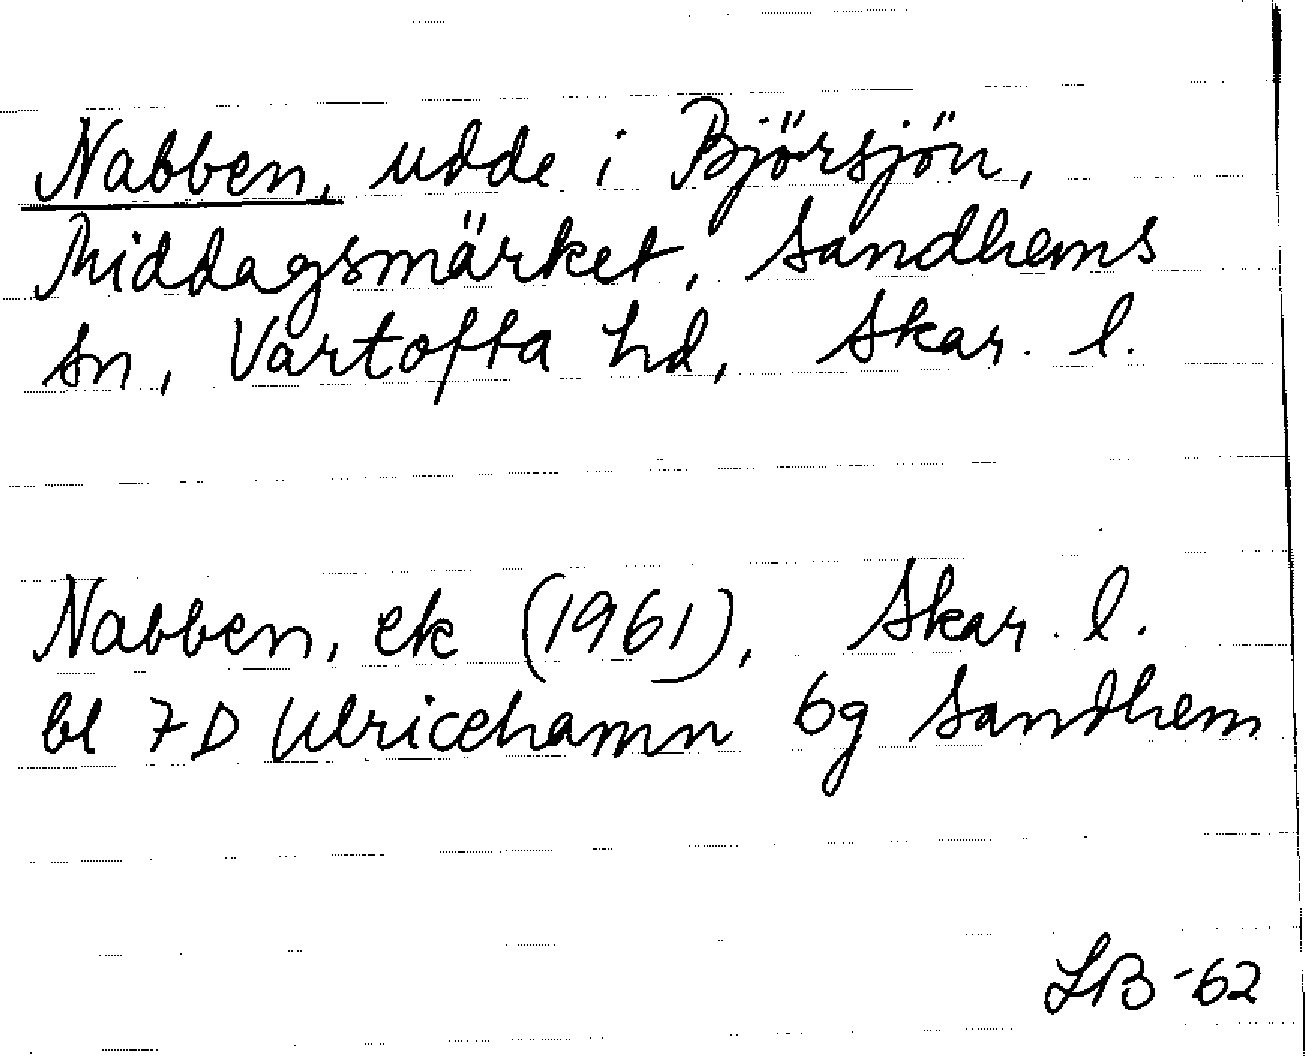 Nabben, udde i Björsjön,
Middagsmärket, Sandhems
sn, Vartofta hd, Skar. l.
Nabben, ek (1961), Skar. l.
bl 7D Ulricehamn 6g Sandhem
LB -62